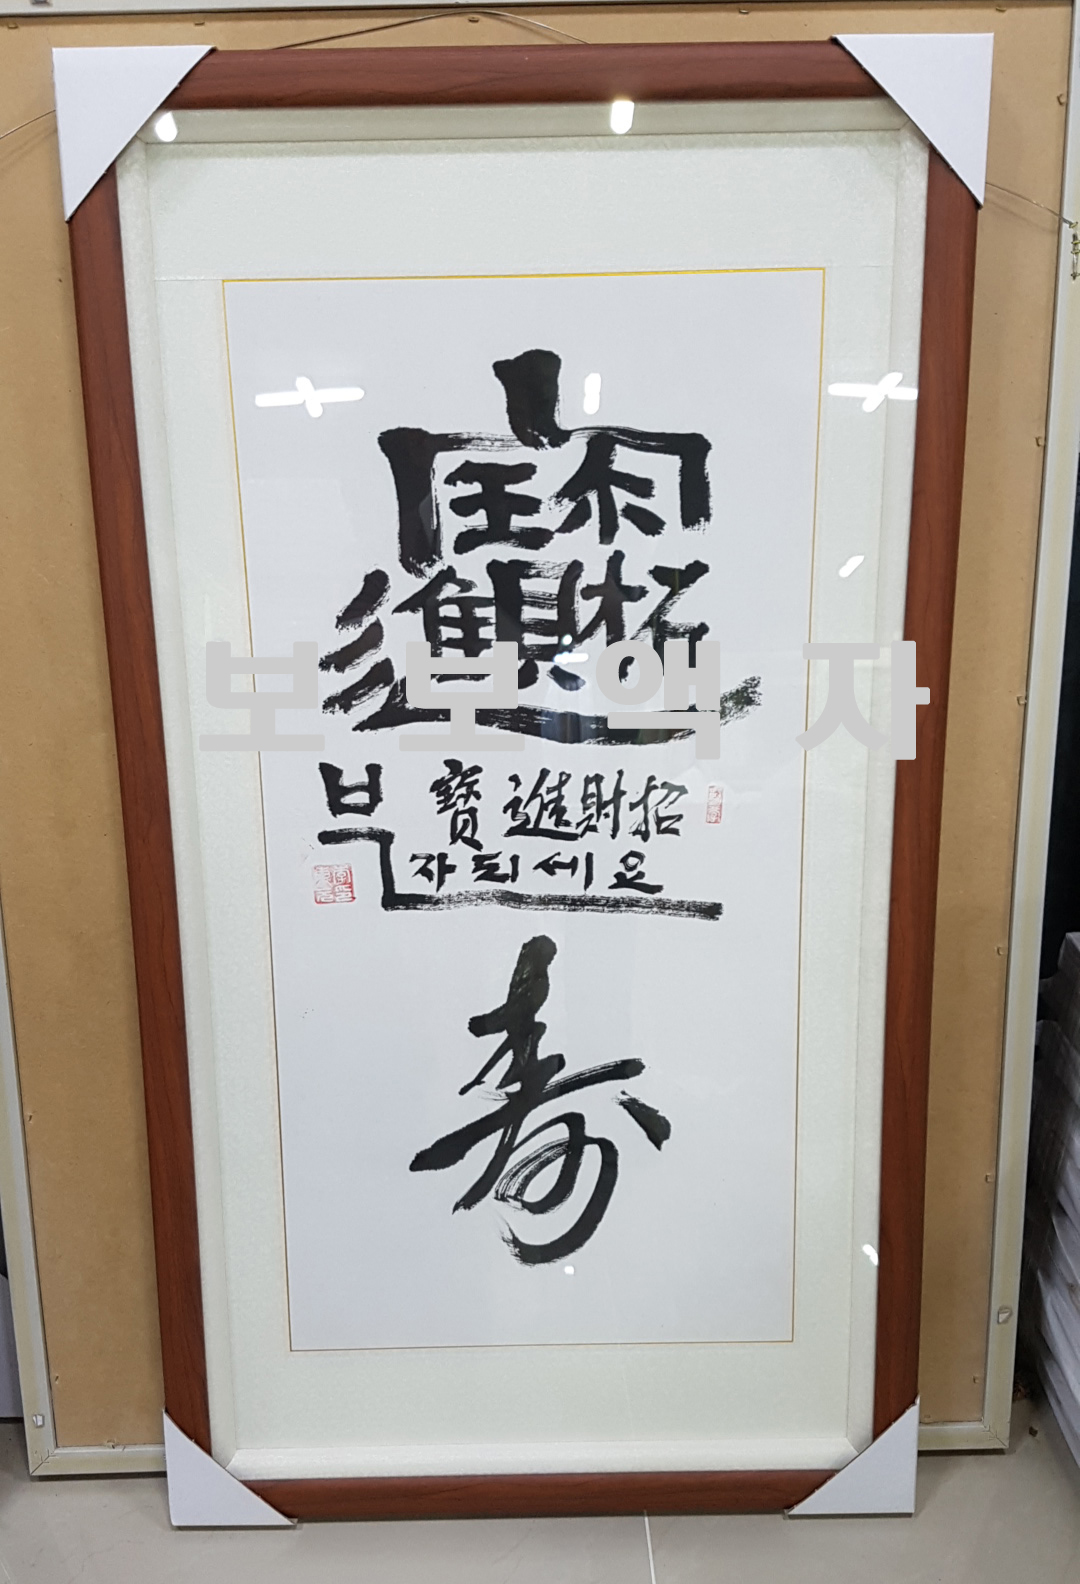 招財進寶
보보액자
寶進財招
부자되세요
寿